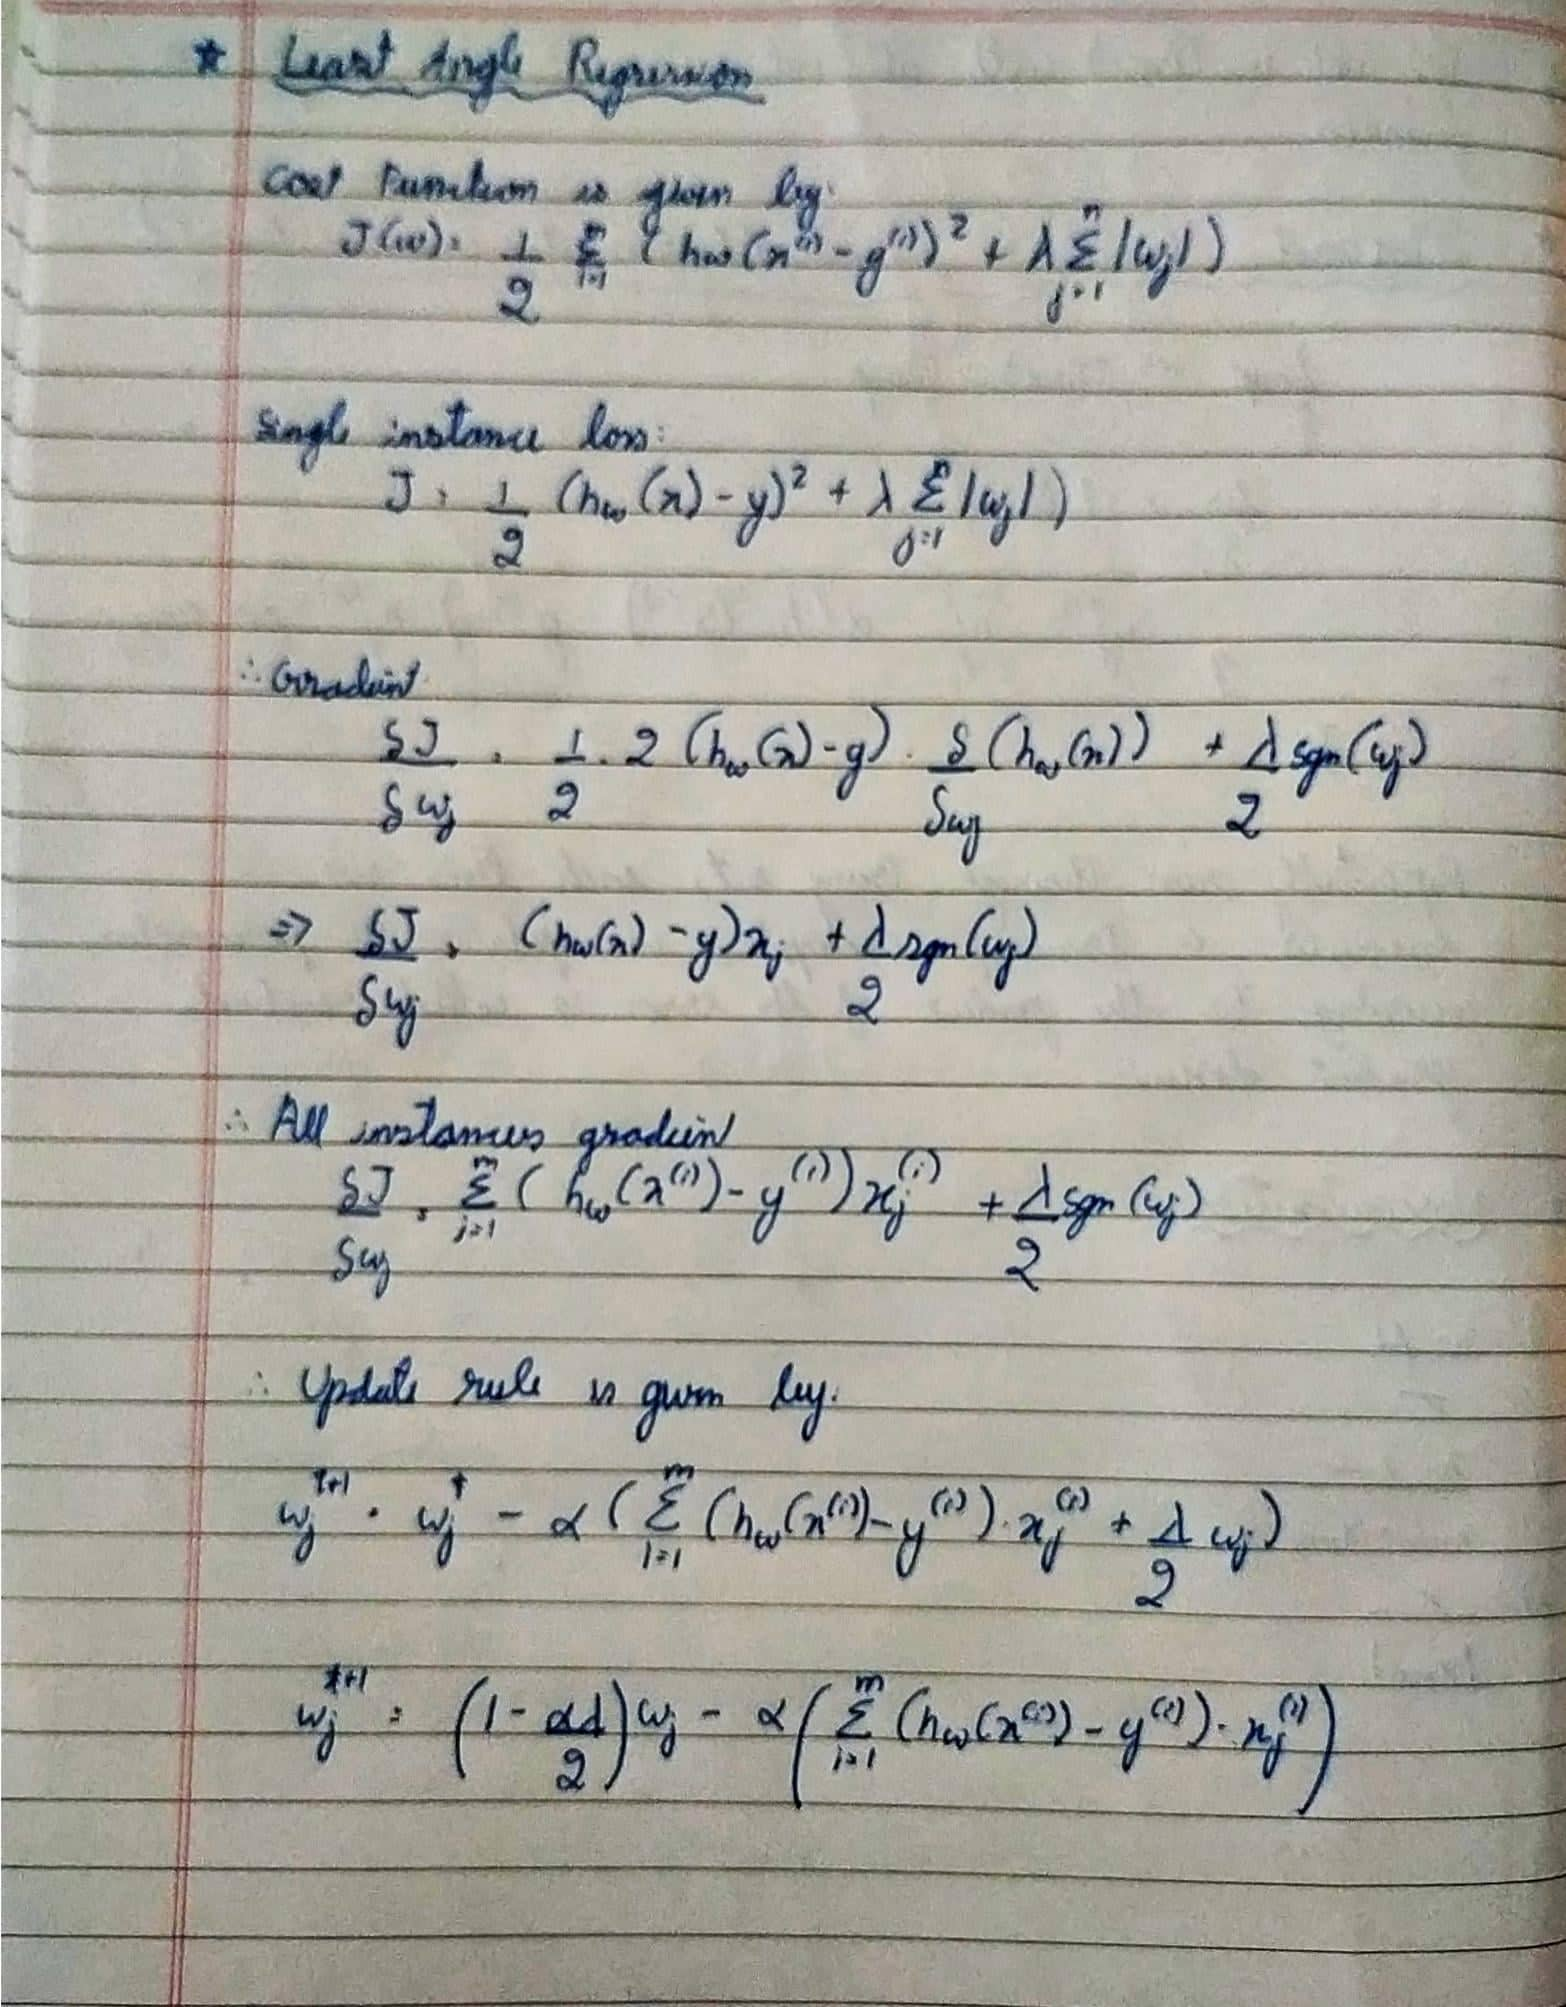 * Least Angle Regression
Cost Function is given by:
J(w) = 1/2 Σ_{i=1}^{m} (hw(x^(i) - y^(i))² + λ Σ_{j=1}^{n} |wj|)
Single instance loss:
J = 1/2 (hw(x) - y)² + λ Σ_{j=1}^{n} |wj|)
∴ Gradient
δJ/δwj = 1/2 . 2 (hw(x) - y) . δ/δwj (hw(x)) + λ/2 sgn(wj)
⇒ δJ/δwj = (hw(x) - y)xj + λ/2 sgn(wj)
∴ All instances gradien
δJ/δwj = Σ_{i=1}^{m} (hw(x^(i)) - y^(i))xj^(i) + λ/2 sgn(wj)
∴ Update rule is given by:
wj^{t+1} = wj^t - α (Σ_{i=1}^{m} (hw(x^(i)) - y^(i)) . xj^(i) + λ/2 wj)
wj^{t+1} = (1 - αλ/2) wj - α (Σ_{i=1}^{m} (hw(x^(i)) - y^(i)) . xj^(i))